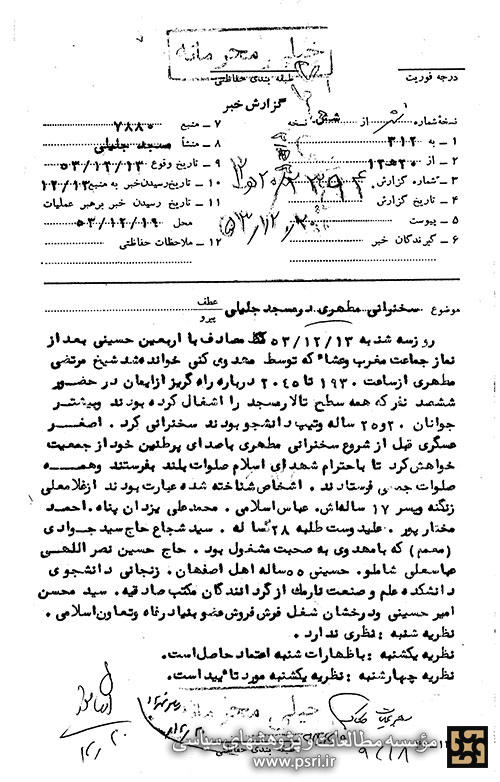 خیلی محرمانه
طبقه بندی حفاظتی
درجه فوریت
گزارش خبر
نسخه شماره از نسخه
۱ ـ به ۳۱۲
۲ ـ از ۲۰ه۱۲
۳ ـ شماره گزارش
۴ ـ تاریخ گزارش
۵ ـ پیوست
۶ ـ گیرندگان خبر
۷ ـ منبع ۷۸۸۰
۸ ـ منشأ مسجد جلیلی
۹ ـ تاریخ وقوع ۵۳/۱۲/۱۳
۱۰ ـ تاریخ رسیدن خبر به منبع ۱۲/۱۳
۱۱ ـ تاریخ رسیدن خبر برهبر عملیات
محل ۵۳/۱۲/۱۹
۱۲ ـ ملاحظات حفاظتی
موضوع سخنرانی مطهری در مسجد جلیلی
عطف
پیرو
روز سه شنبه ۵۳/۱۲/۱۳ مصادف با اربعین حسینی بعد از
نماز جماعت مغرب و عشاء که توسط مهدوی کنی خوانده شد شیخ مرتضی
مطهری از ساعت ۱۹۳۰ تا ۲۰۴۵ درباره راه گریز از ایمان در حضور
ششصد نفر که همه سطح تالار مسجد را اشغال کرده بودند و بیشتر
جوانان ۲۰ و ۲۵ ساله و تیپ دانشجو بودند سخنرانی کرد . اصغر
عسگری قبل از شروع سخنرانی مطهری با صدای پر طنین خود از جمعیت
خواهش کرد تا باحترام شهدای اسلام صلوات بلند بفرستند و همه
صلوات جمعی فرستادند . اشخاص شناخته شده عبارت بودند از غلامعلی
زنگنه و پسر ۱۷ ساله اش . عباس اسلامی . محمد علی یزدان پناه . احمد
مختار پور . علیدوست طلبه ۲۸ ساله . سید شجاع حاج سید جوادی
(معمم) که با مهدوی به صحبت مشغول بود . حاج حسین نصراللهی
عباسعلی شاملو . حسینی ۵۵ ساله اهل اصفهان . زنجانی دانشجوی
دانشکده علم و صنعت نارمک از گردانندگان مکتب صادقیه . سید محسن
امیر حسینی و درخشان شغل فرش فروش عضو بنیاد رفاه و تعاون اسلامی .
نظریه شنبه : نظری ندارد .
نظریه یکشنبه : باظهارات شنبه اعتماد حاصل است .
نظریه چهارشنبه : نظریه یکشنبه مورد تایید است .
خیلی محرمانه
طبقه بندی حفاظتی
مؤسسه مطالعات و پژوهشهای سیاسی
www.psri.ir